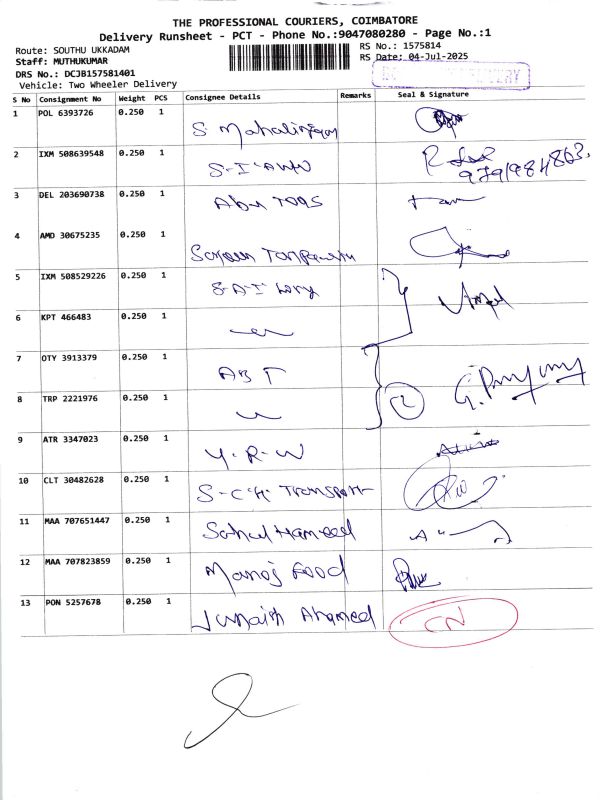 THE PROFESSIONAL COURIERS, COIMBATORE
Delivery Runsheet - PCT - Phone No.:9047080280 - Page No.:1
Route: SOUTHU UKKADAM
RS No.: 1575814
Staff: MUTHUKUMAR
RS Date: 04-Jul-2025
DRS No.: DCJB157581401
DELIVERY
Vehicle: Two Wheeler Delivery
S No Consignment No Weight PCS Consignee Details Remarks Seal & Signature
1 POL 6393726 0.250 1 S Mahalingam
2 IXM 508639548 0.250 1
3 DEL 203690738 0.250 1 Abu TOOS
4 AMD 30675235 0.250 1
5 IXM 508529226 0.250 1
6 KPT 466483 0.250 1
7 OTY 3913379 0.250 1 ABT
8 TRP 2221976 0.250 1 2
9 ATR 3347023 0.250 1 Y.R.W
10 CLT 30482628 0.250 1 Transport
11 MAA 707651447 0.250 1 Sahul Hameed
12 MAA 707823859 0.250 1 Manoj Food
13 PON 5257678 0.250 1 Junaith Ahamed CN